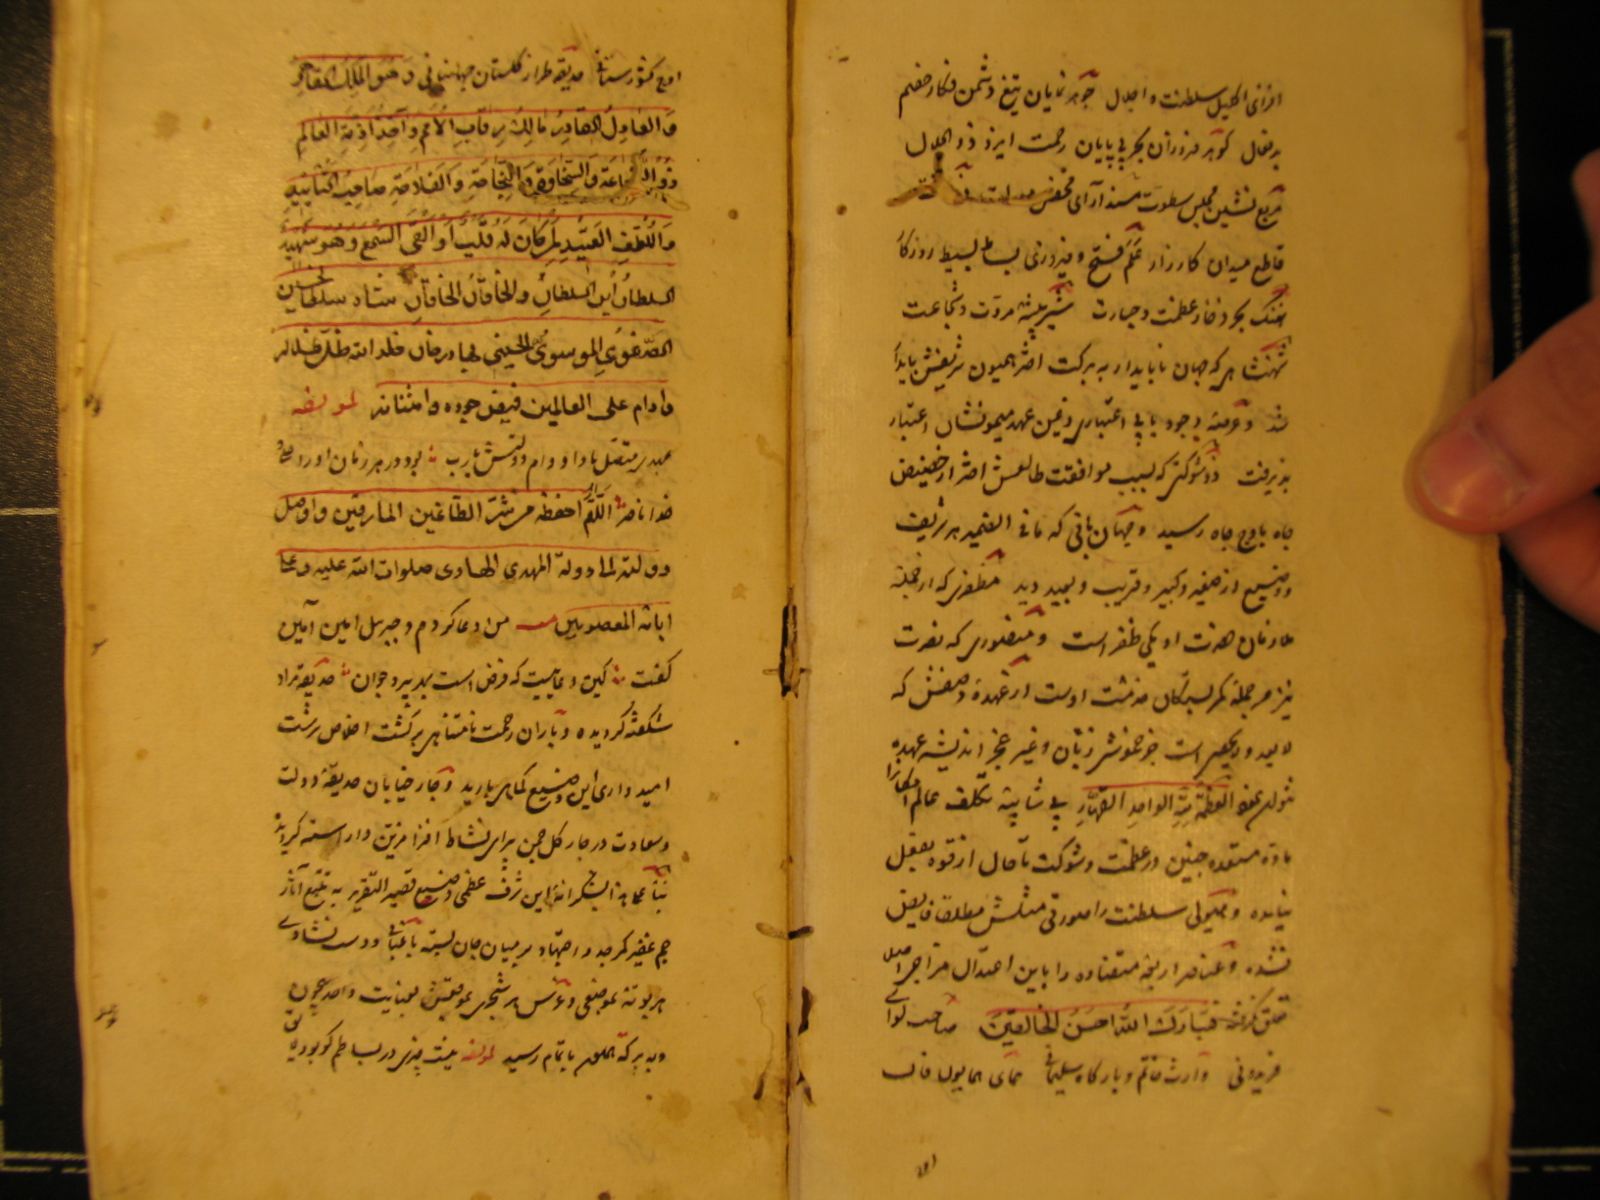 افزای اکلیل سلطنت و اجلال جوهر نمایان تیغ دشمن شکار خصم
بدفعال گوهر فروزان بحر بی پایان رحمت ایزد ذو الجلال
مربع نشین مجلس سطوت مسند آرای محفل
قاطع میدان کارزار علم فتح و فیروزی بساط بسیط روزگار
نهنگ بحر ذخار عظمت و جسارت شیر بیشه مروت و شجاعت
شهنشاهی که جهان ناپایدار به برکت اثر همیون شریفش پایدار
شد و عرصه وجود با بی اعتباری و فین عهد میمونشان اعتبار
پذیرفت ذو شوکتی که بسبب موافقت طالعش اختر از حضیض
چاه باوج جاه رسید و جهان بانی که ما فی الضمیر هر شریف
و وضیع از صغیر و کبیر و قریب و بعید دید مظفری که از جمله
ملازمان حضرت او یکی ظفر است و منصوری که نصرت
نیز در جمله کمربستگان خدمت اوست از عهده وصفش که
لا یعد و لا یحصی است جز خموشی زبان و غیر عجز اندیشه عهده
نتواند العظمة لله الواحد القهار بی شائبه تکلف عالم
ماده مستعده چنین در عظمت و شوکت تا حال از قوه بفعل
نیامده و هیولی سلطنت را صورتی مثلش مطلقا فایض
نشده و عناصر اربعه متضاده را باین اعتدال مزاجی اصل
خلق نگرفته فتبارک الله احسن الخالقین صاحب لوای
فریدونی وارث خاتم و بارگاه سلیمانی همای همایون فال
اوج کشورستانی حدیقه طراز گلستان جهانبانی و هو الملک القاهر
و العادل القادر مالک رقاب الامم و آخذ اذمة العالم
ذو الشجاعة و السخاوة و النجاحة و الفلاحة صاحب التایید
و اللطف العتید لمن کان له قلب او القی السمع و هو شهید
السلطان ابن السلطان و الخاقان الخاقان شاه سلطان حسین
الصفوی الموسوی الحسینی بهادرخان خلد الله ظل ظلاله
و ادام علی العالمین فیض جوده و امتنانه لمولفه
عهدی متصل بادا دوام دولتش یارب بود در هر زمان او را
خدا ناصر اللهم احفظه من شر الطاغین المارقین و اوصل
دولته الی دولة المهدی الهادی صلوات الله علیه و علی
ابائه المعصومین من دعا کردم و جبرئیل امین آمین
گفت کین دعاییست که فرض است به پیر و جوان حدیقه مراد
شکفته گردیده و باران رحمت نامتناهی بر کشت اخلاص سرشت
امیدواری این وضیع کماهی بارید و چار خیابان حدیقه دولت
و سعادت در چار گل چمن سرای نشاط افزا مزین و آراسته گردید
بناء علی هذا بشکرانه این شرف عظمی وضیع قصیر التقریر به تتبع آثار
جم غفیر کمر جد و اجتهاد بر میان جان بسته باغبانی و دست نشاندی
هر بوته بموضعی و غرس هر شجری بموقعش بعنایت واحد بیچون
و به برکت باتمام رسید لمولفه